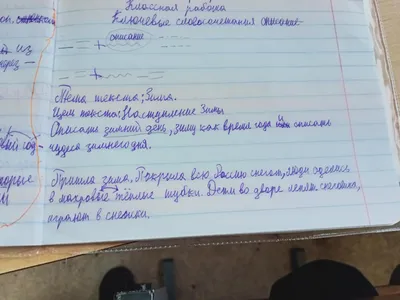 Классная работа
Ключевые словосочетания описание
описание
из
Тема текста: Зима.
Цель текста: Наступление Зимы
Описать зимний день, зиму как время года и описать
чудеса зимнего дня.
Пришла зима. Покрыла всю Россию снегом, люди оделись
в махровые тёплые шубки. Дети во дворе лепят снеговика,
играют в снежки.